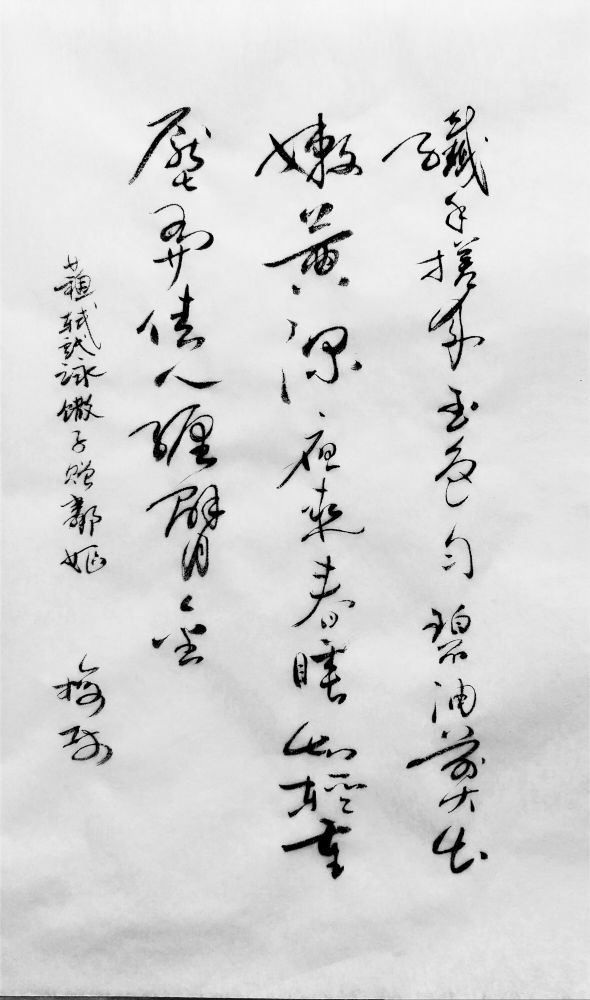 纖手搓來玉色勻碧油煎出
嫩黃深夜來春睡知輕重
壓扁佳人纏臂金
蘇軾詩詠饊子贈鄰嫗